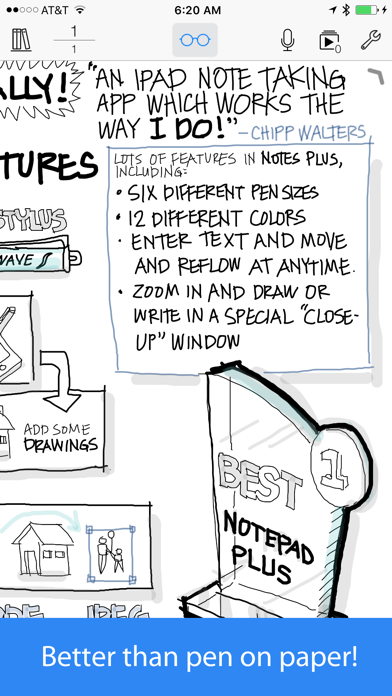 AT&T 6:20 AM
1
1
0
ALLY!
"AN IPAD NOTE TAKING
APP WHICH WORKS THE
WAY I DO!"
— CHIPP WALTERS
TURES
LOTS OF FEATURES IN NOTES PLUS,
INCLUDING:
• SIX DIFFERENT PEN SIZES
• 12 DIFFERENT COLORS
• ENTER TEXT AND MOVE
AND REFLOW AT ANYTIME.
• ZOOM IN AND DRAW OR
WRITE IN A SPECIAL "CLOSE-
UP" WINDOW
STYLUS
WAVE
ADD SOME
DRAWINGS
BEST
1
NOTEPAD
PLUS
JPEG
Better than pen on paper!